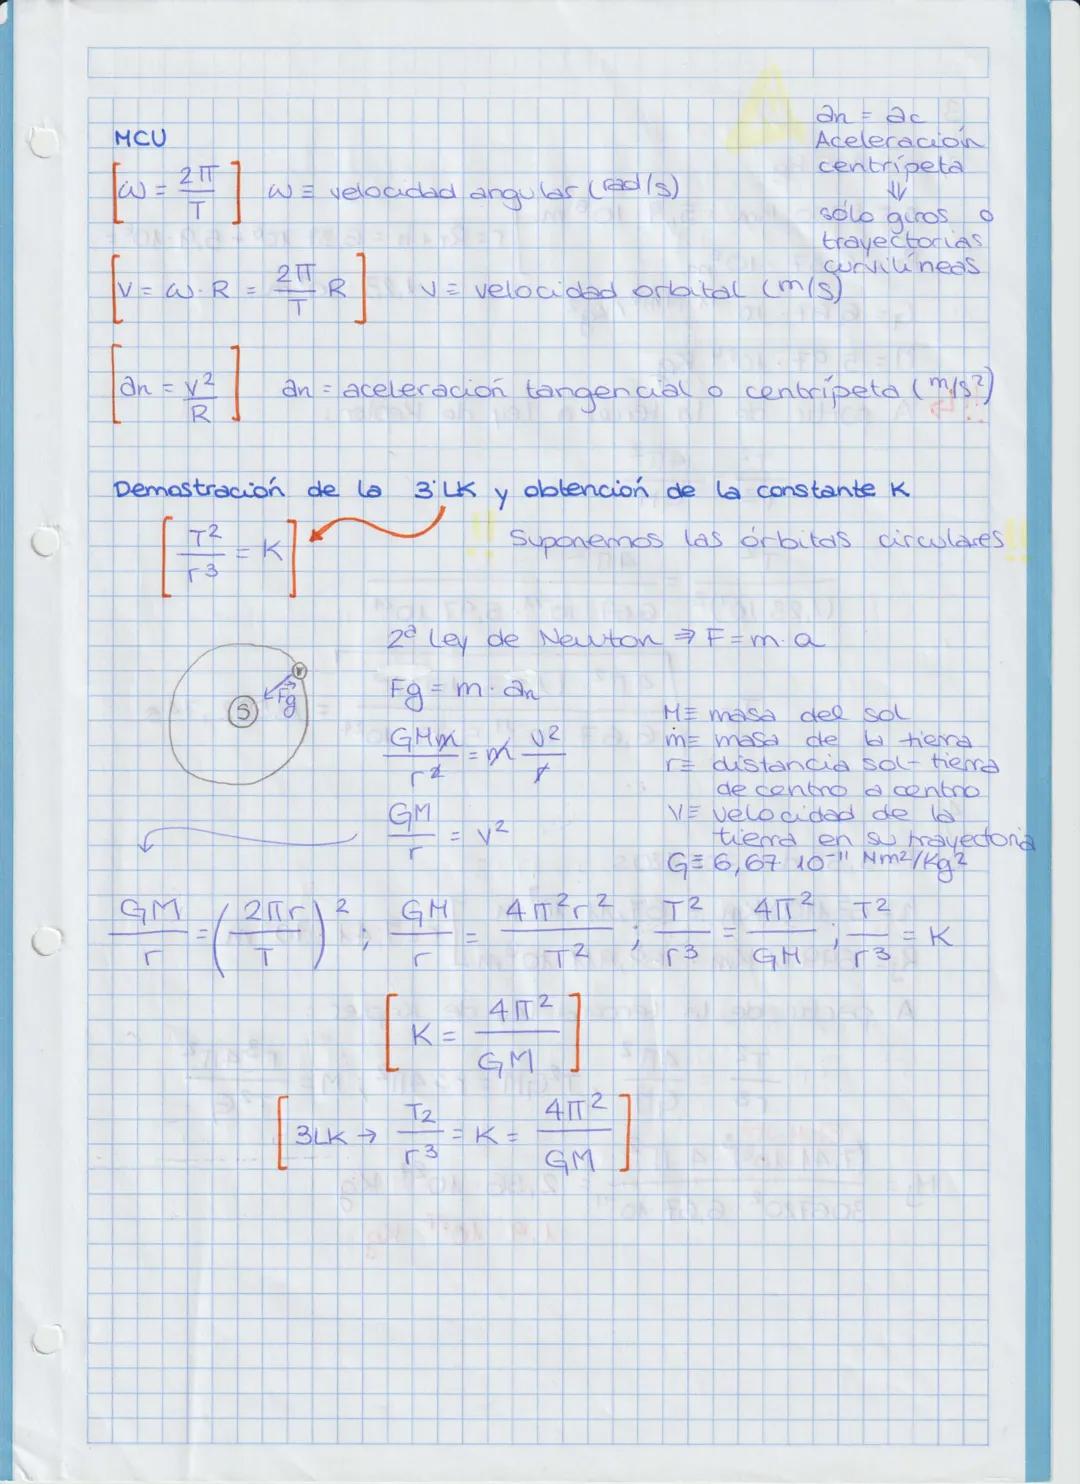 an = ac
Aceleración
centrípeta
⇓
sólo giros o
trayectorias
curvilíneas
MCU
[ω = 2π/T] ω ≡ velocidad angular (rad/s)
[v = ω·R = 2π/T R] v ≡ velocidad orbital (m/s)
[an = v²/R] an = aceleración tangencial o centrípeta (m/s²)
Demostración de la 3ªLK y obtención de la constante K
[T²/r³ = K] Suponemos las órbitas circulares
2ª Ley de Newton ⇒ F = m·a
Fg = m·an
GMm/r² = m v²/r
GM/r = v²
S
Fg
M ≡ masa del sol
m ≡ masa de la tierra
r ≡ distancia sol-tierra
de centro a centro
V ≡ velocidad de la
tierra en su trayectoria
G ≡ 6,67·10⁻¹¹ Nm²/Kg²
GM/r = (2πr/T)² ; GM/r = 4π²r²/T² ; T²/r³ = 4π²/GM ; T²/r³ = K
[K = 4π²/GM]
[3LK → T2/r³ = K = 4π²/GM]